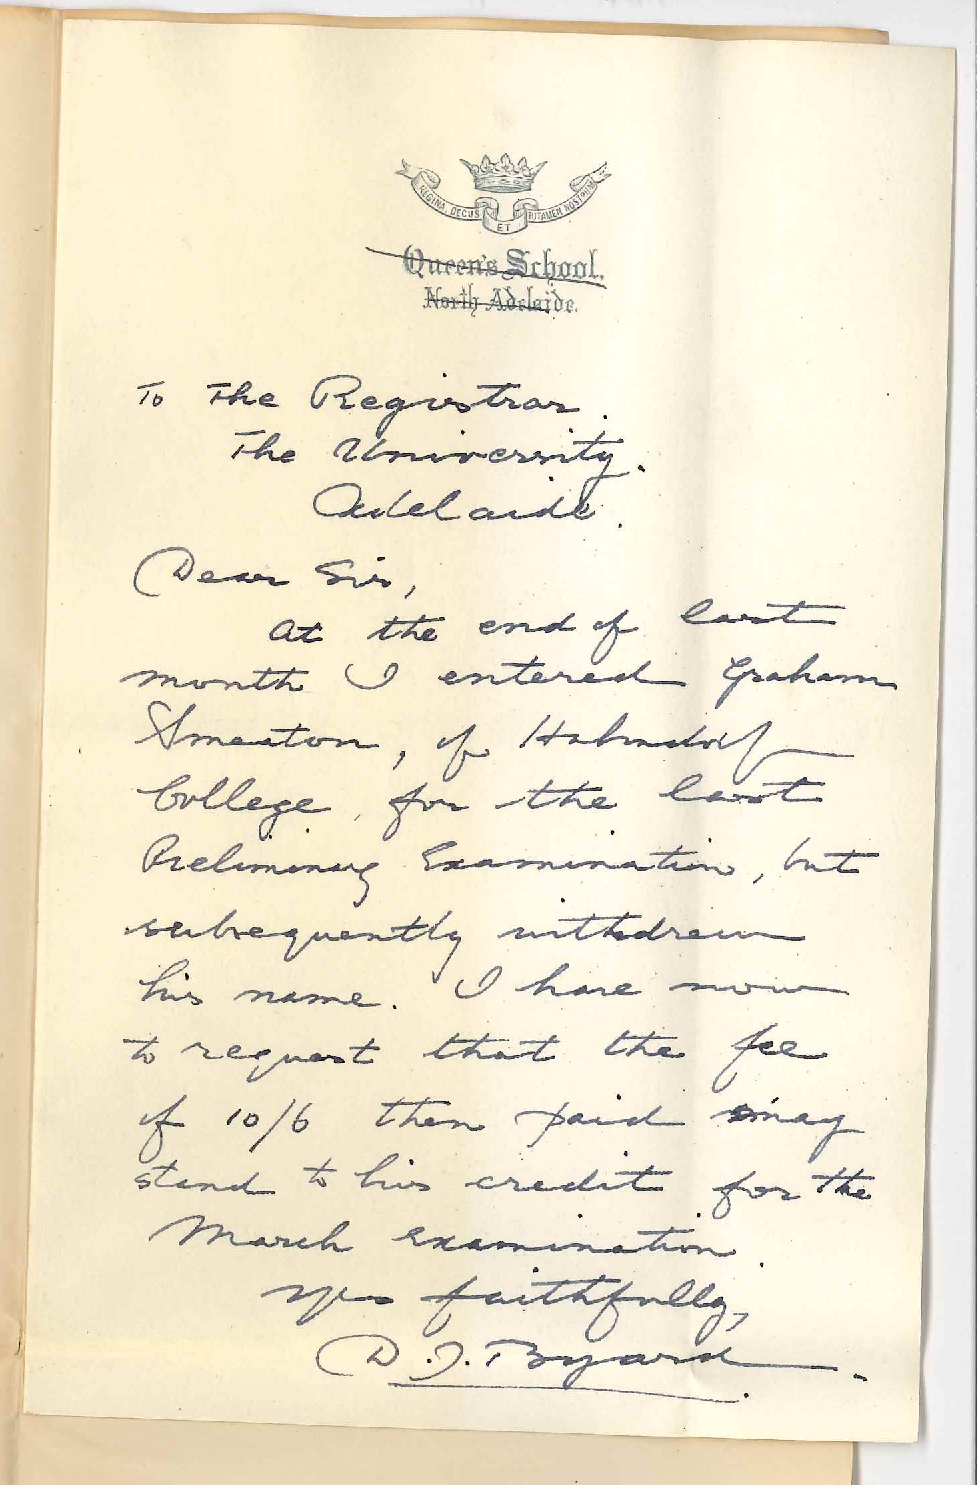 REGINA DECUS ET TUTAMEN NOSTRUM
Queen's School.
North Adelaide.
To The Registrar.
The University.
Adelaide.
Dear Sir,
At the end of last
month I entered Graham
Smeaton, of Hahndorf
College, for the last
Preliminary Examination, but
subsequently withdrew
his name. I have now
to request that the fee
of 10/6 then paid may
stand to his credit for the
March Examination.
Yrs faithfully,
D. J. Byard.